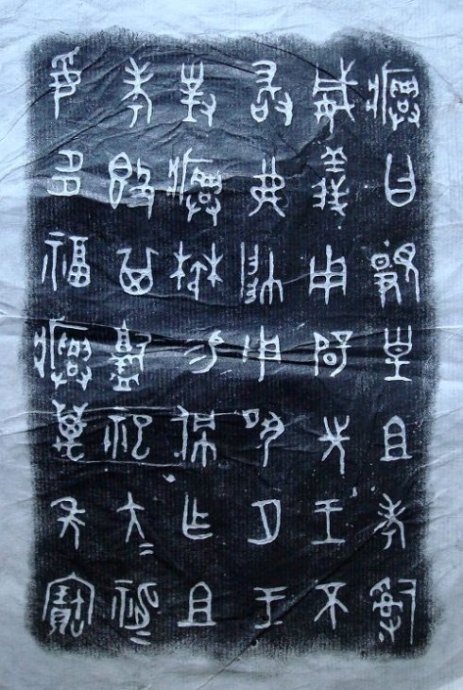 𤼈曰覭皇且考𤔲
威義用辟先王不
敢弗帥用夙夕王
對𤼈楙易佩乍且
考𣪘其盩祀大＝神＝
妥多福𤼈萬年寶